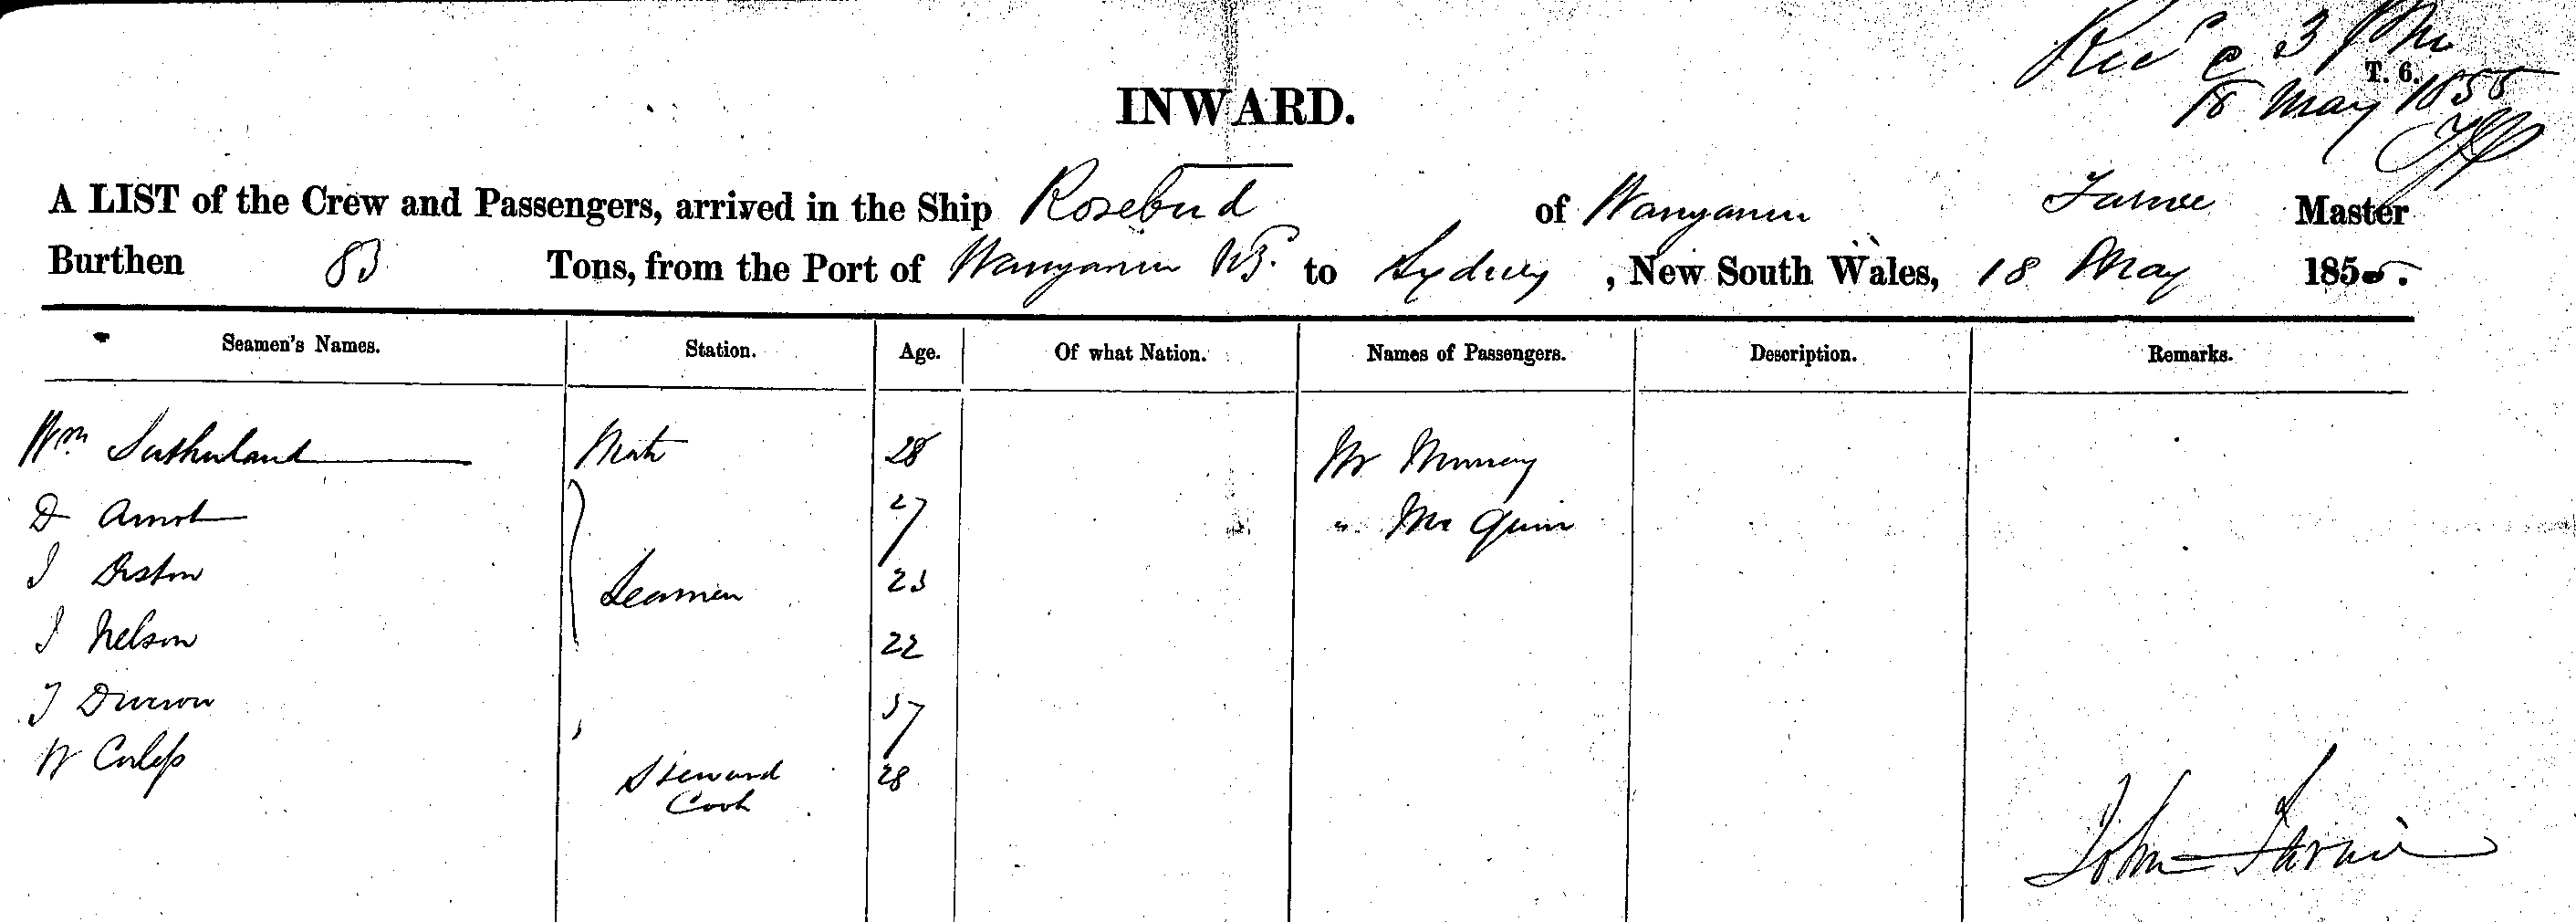 Recd @ 3 PM
T. 6.
18 May 1855
INWARD.
A LIST of the Crew and Passengers, arrived in the Ship Rosebud of Wanganui Master
Burthen 83 Tons, from the Port of Wanganui NZ. to Sydney, New South Wales, 18 May 1855.
Seamen's Names. Station. Age. Of what Nation. Names of Passengers. Description. Remarks.
Wm Sutherland Mate 28 Mr Murray
D Arnot 27 " McQuin
J 23
Seamen
J Nelson 22
J 37
W 28
Steward
Cook
John